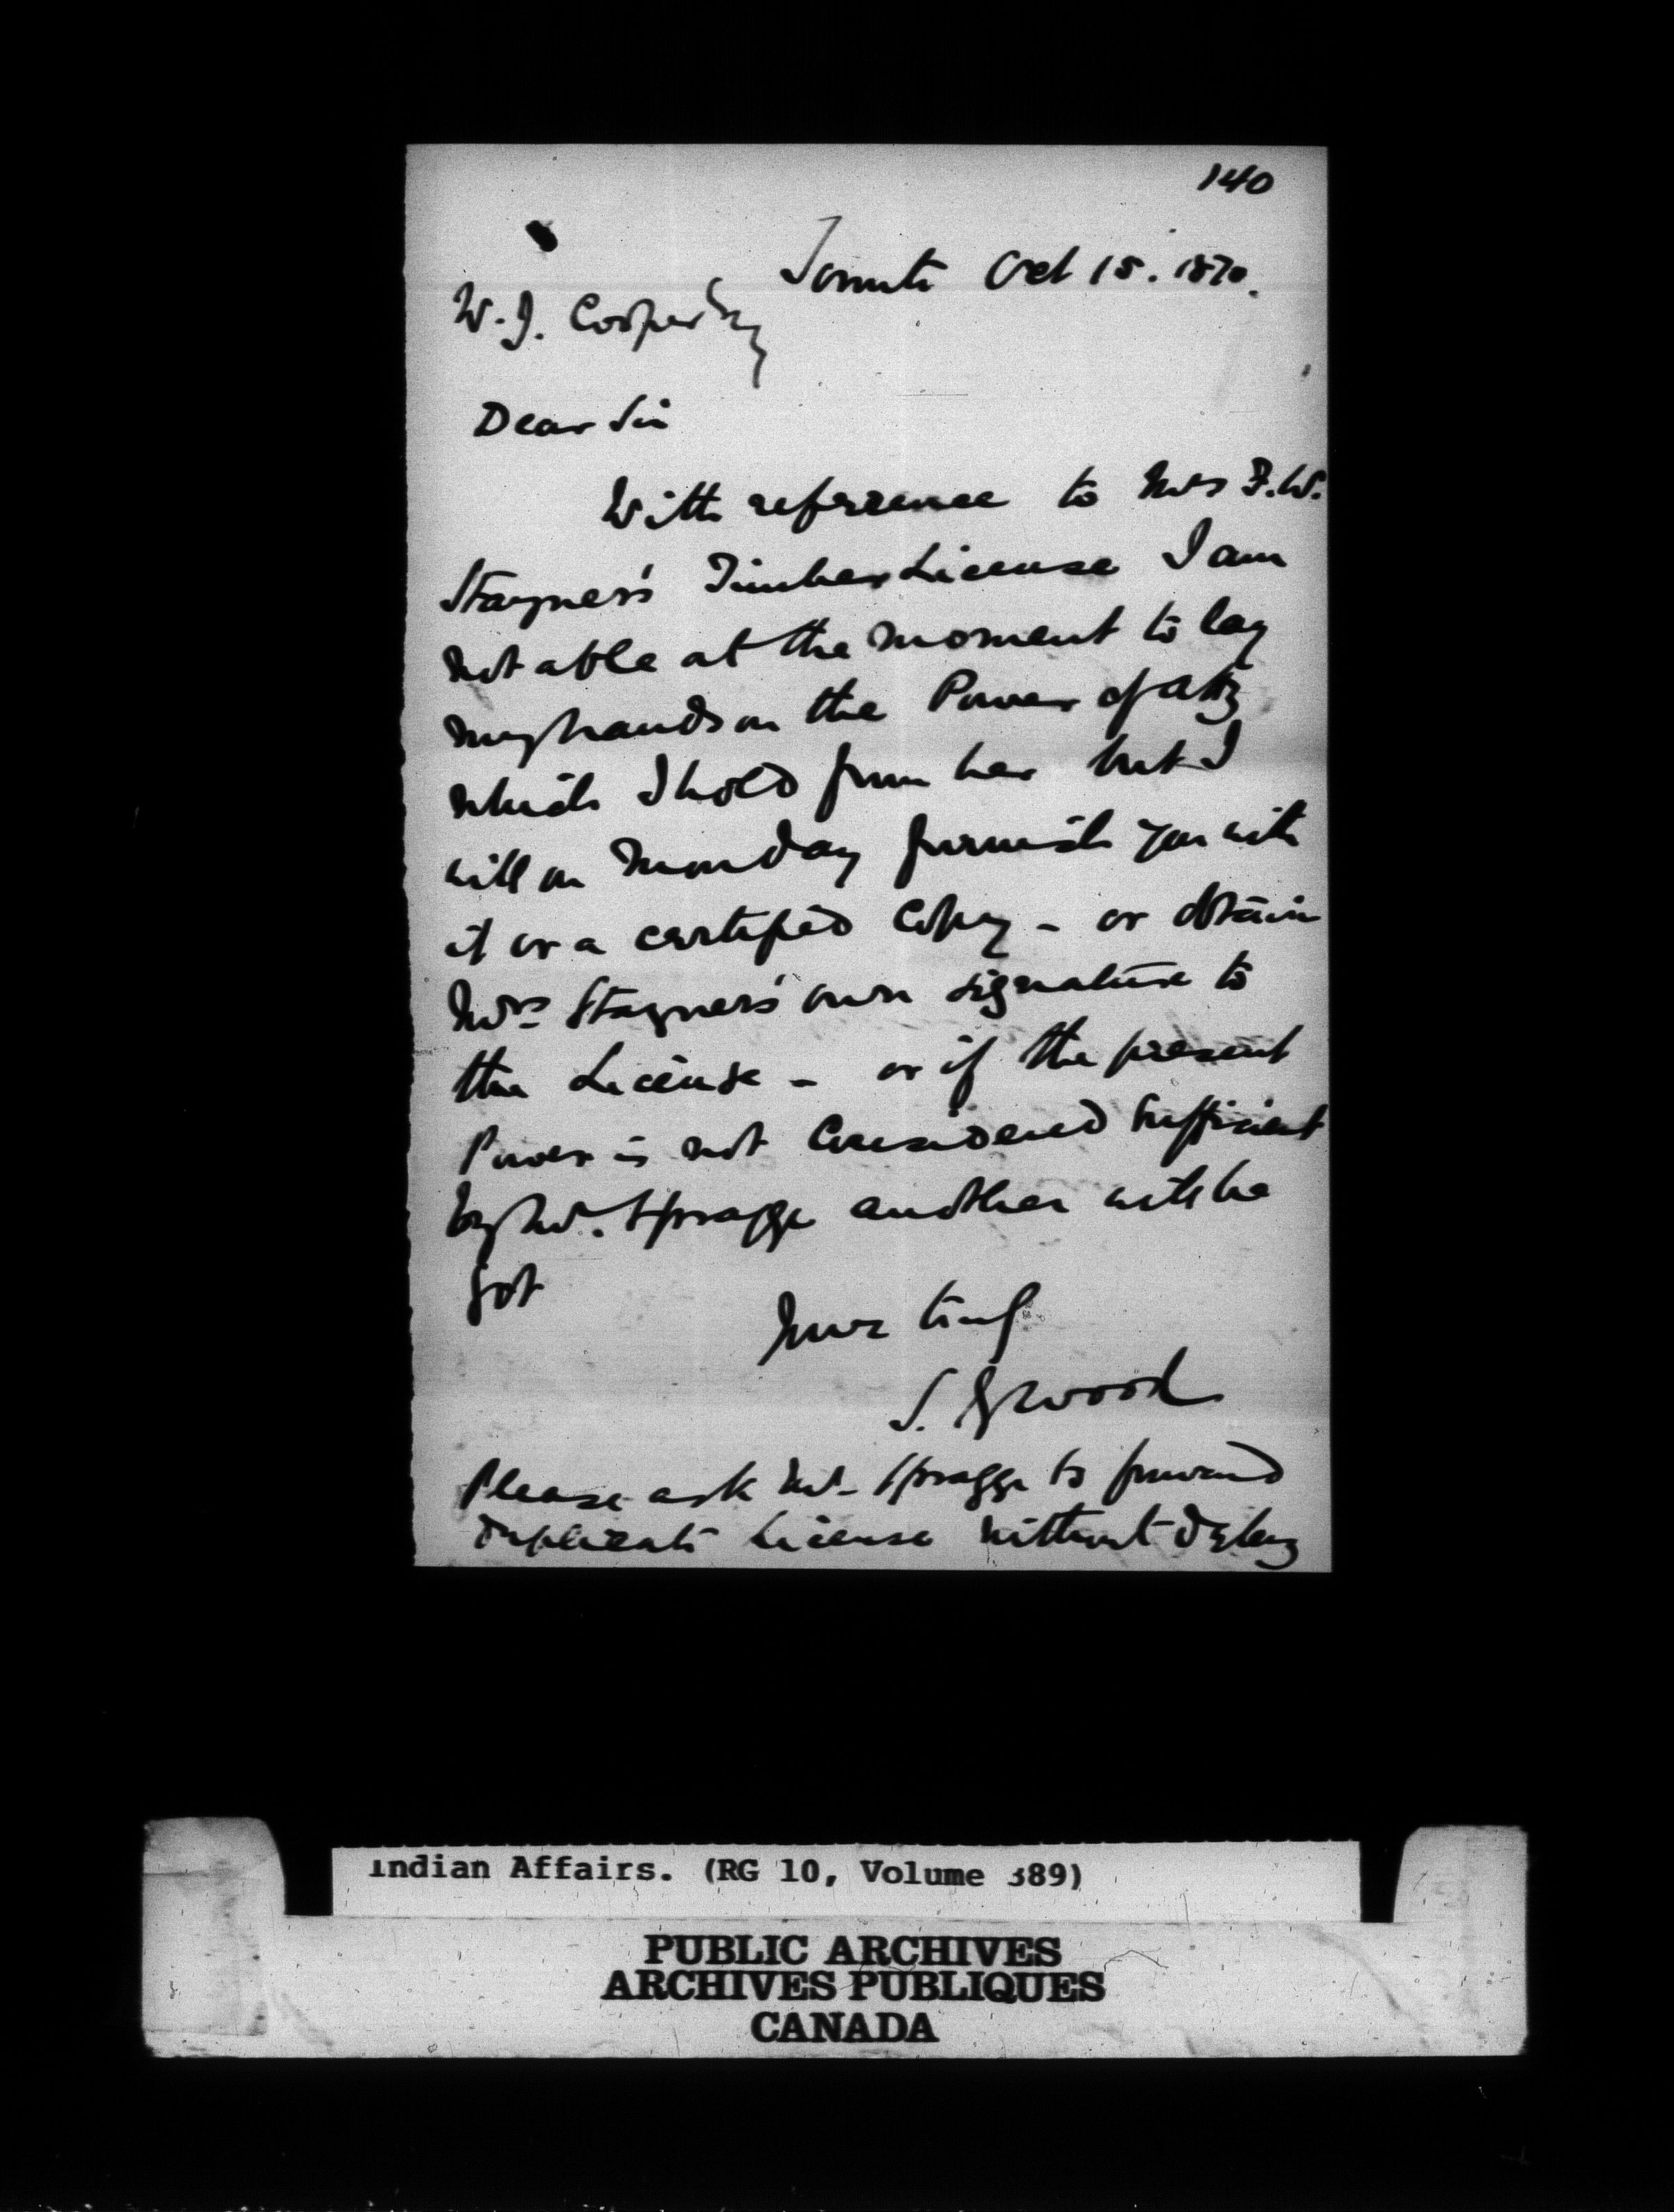 140
Toronto Oct 15. 1870.
W. J. Cooper Esq
Dear Sir
With reference to Mrs F. W.
Stayner's Timber License I am
not able at the moment to lay
my hands on the Power of Atty
which I hold from her but I
will on Monday furnish you with
it or a certified Copy - or obtain
Mrs Stayner's own signature to
the License - or if the present
Power is not Considered Sufficient
by Mr. Spragge another will be
got
Yours truly
S. G. Wood
Please ask Mr. Spragge to forward
duplicate License without delay
Indian Affairs. (RG 10, Volume 389)
PUBLIC ARCHIVES
ARCHIVES PUBLIQUES
CANADA